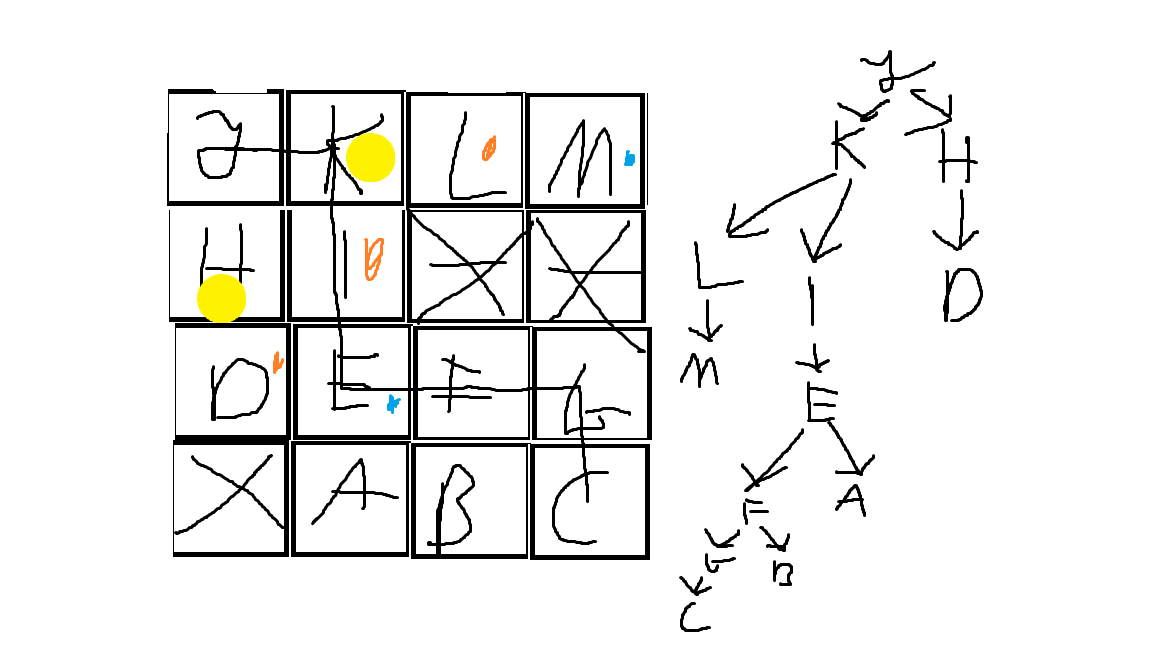 J K L M
H I X X
D E F G
X A B C
J
K H
L I D
M E
F A
G B
C